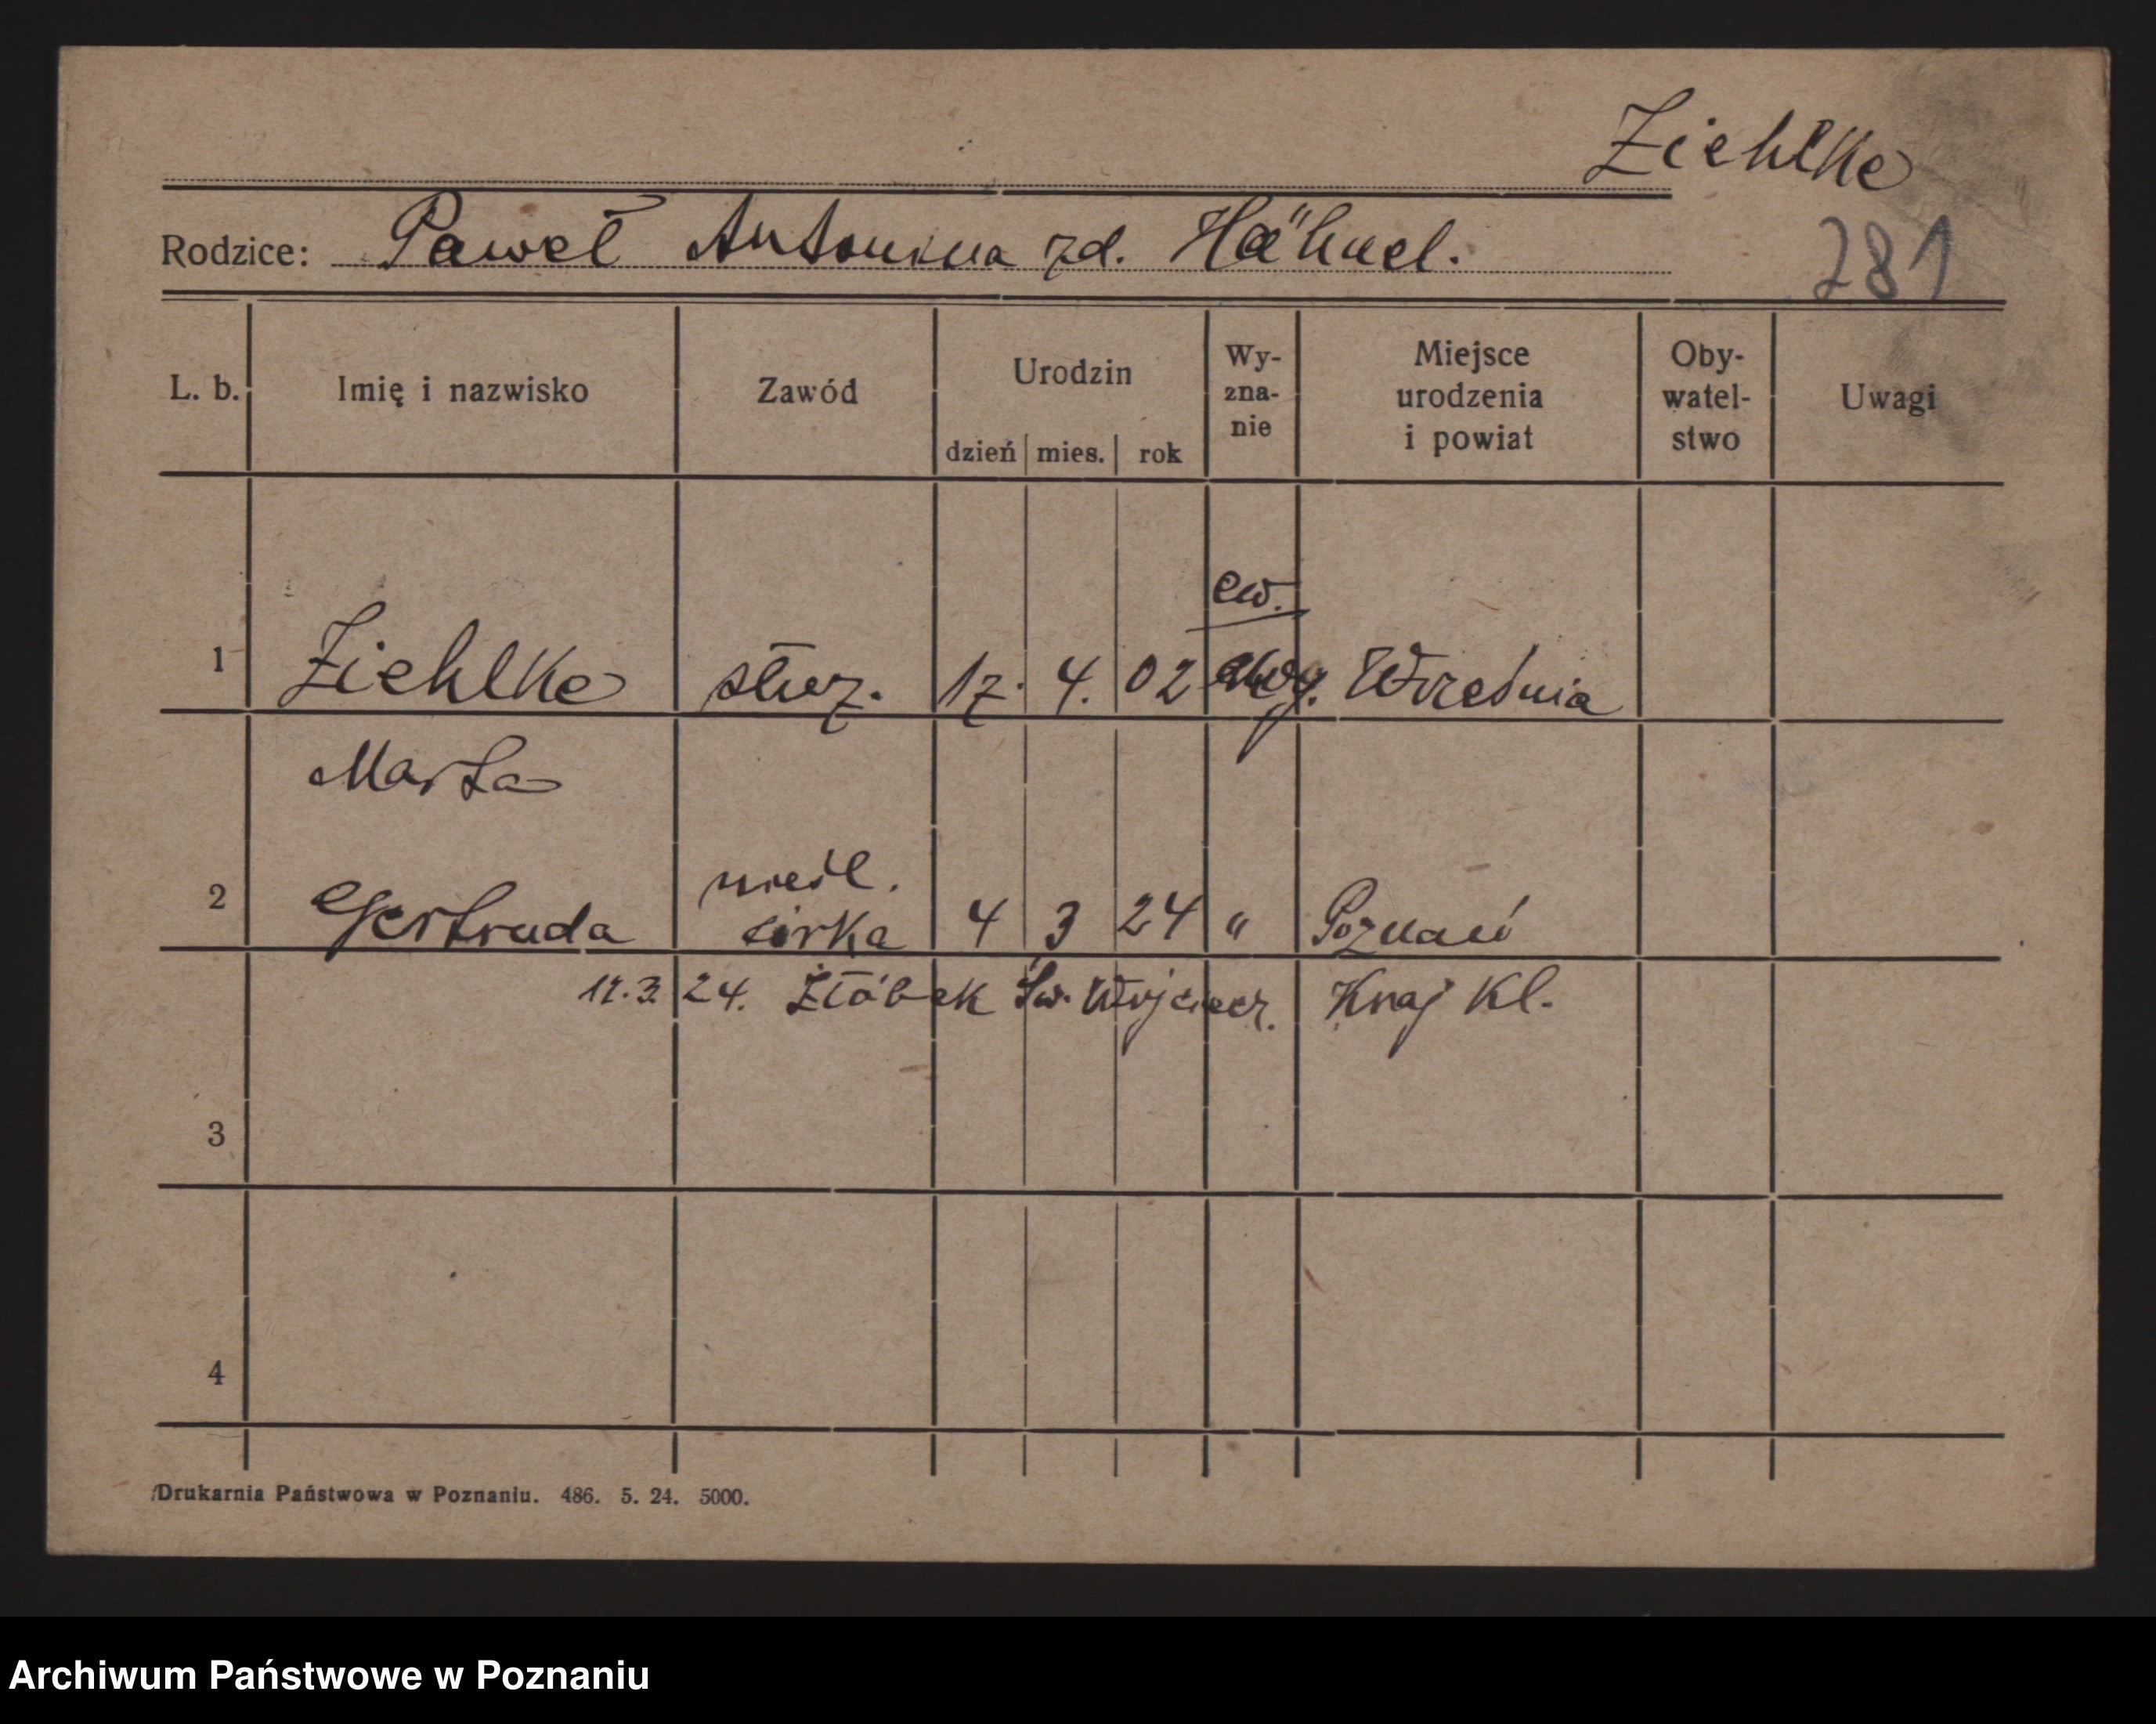 Ziehlke
Rodzice: Paweł Antonina zd. Hähnel.
281
L. b. Imię i nazwisko Zawód Urodzin dzień mies. rok Wy-zna-nie Miejsce urodzenia i powiat Oby-watel-stwo Uwagi
ew.
1 Ziehlke służ. 17. 4. 02 Września
Marta
nieśl.
2 Gertruda córka 4 3 24 " Poznań
12.3.24. Żłóbek Św. Wojciech. Kraj Kl.
3
4
Drukarnia Państwowa w Poznaniu. 486. 5. 24. 5000.
Archiwum Państwowe w Poznaniu